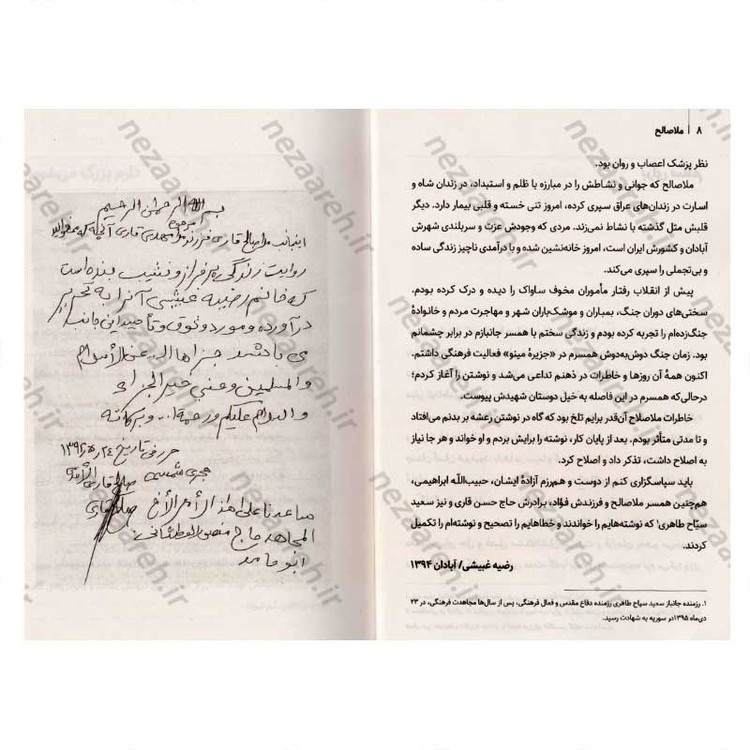 ۸ | ملاصالح
نظر پزشک اعصاب و روان بود.
ملاصالح که جوانی و نشاطش را در مبارزه با ظلم و استبداد، در زندان شاه و
اسارت در زندان‌های عراق سپری کرده، امروز تنی خسته و قلبی بیمار دارد. دیگر
قلبش مثل گذشته با نشاط نمی‌زند. مردی که وجودش عزت و سربلندی شهرش
آبادان و کشورش ایران است، امروز خانه‌نشین شده و با درآمدی ناچیز زندگی ساده
و بی‌تجملی را سپری می‌کند.
پیش از انقلاب رفتار مأموران مخوف ساواک را دیده و درک کرده بودم.
سختی‌های دوران جنگ، بمباران و موشک‌باران شهر و مهاجرت مردم و خانوادهٔ
جنگ‌زده‌ام را تجربه کرده بودم و زندگی سختم با همسر جانبازم در برابر چشمانم
بود. زمان جنگ دوش‌به‌دوش همسرم در «جزیرهٔ مینو» فعالیت فرهنگی داشتم.
اکنون همهٔ آن روزها و خاطرات در ذهنم تداعی می‌شد و نوشتن را آغاز کردم؛
درحالی‌که همسرم در این فاصله به خیل دوستان شهیدش پیوست.
خاطرات ملاصلاح آن‌قدر برایم تلخ بود که گاه در نوشتن رعشه بر بدنم می‌افتاد
و تا مدتی متأثر بودم. بعد از پایان کار، نوشته را برایش بردم و او خواند و هر جا نیاز
به اصلاح داشت، تذکر داد و اصلاح کرد.
باید سپاسگزاری کنم از دوست و هم‌رزم آزادهٔ ایشان، حبیب‌اللّه ابراهیمی،
هم‌چنین همسر ملاصالح و فرزندش فؤاد، برادرش حاج حسن قاری و نیز سعید
سیّاح طاهری۱ که نوشته‌هایم را خواندند و خطاهایم را تصحیح و نوشته‌ام را تکمیل
کردند.
رضیه غبیشی/ آبادان ۱۳۹۴
۱. رزمنده جانباز سعید سیاح طاهری رزمنده دفاع مقدس و فعال فرهنگی، پس از سال‌ها مجاهدت فرهنگی، در ۲۳
دی‌ماه ۱۳۹۵در سوریه به شهادت رسید.
بسم الله الرحمن الرحیم
اینجانب ملاصالح قاری فرزند مرحوم مهدی قاری
روایت زندگی پر فراز و نشیب بنده است
که خانم رضیه غبیشی آنرا به تحریر
در آورده و مورد وثوق و تأیید اینجانب
می باشد جزاها الله عن الإسلام
والمسلمین وعنی خیر الجزاء
والسلام علیکم ورحمة الله وبرکاته
هجری شمسی
المجاهد حاج منصور
ابو حامد
nezaareh.ir